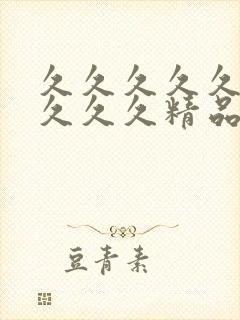 久久久久久
久久久精品
豆青素